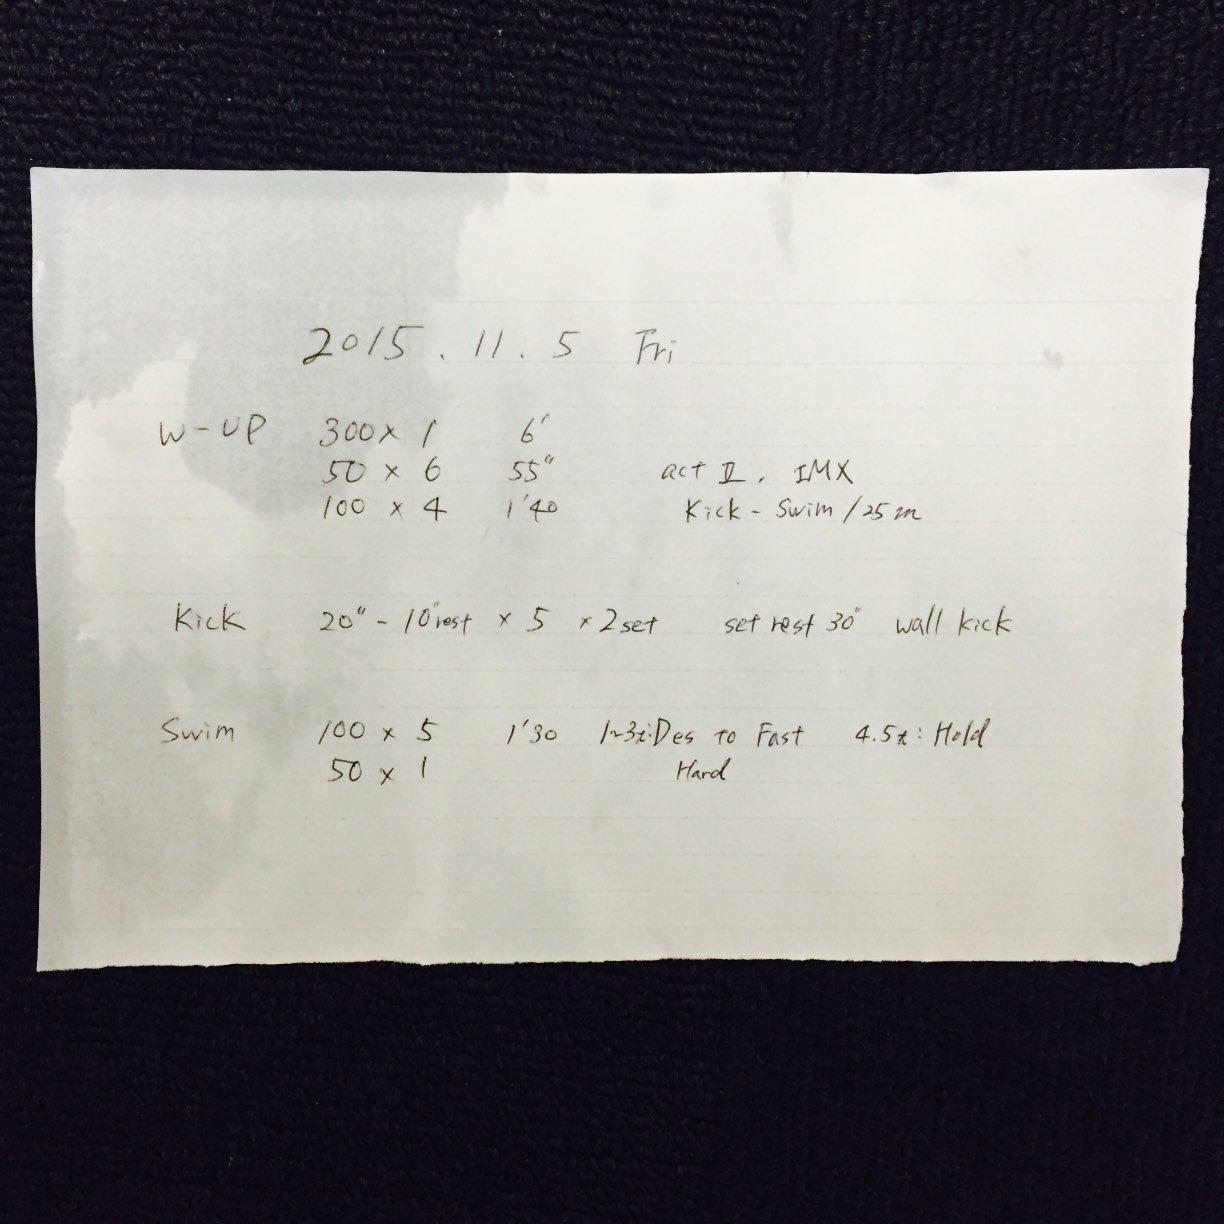 2015.11.5 Fri
W-UP 300 × 1 6'
50 × 6 55" act II. IMX
100 × 4 1'40 Kick - Swim / 25m
Kick 20" - 10"rest × 5 × 2set set rest 30" wall kick
Swim 100 × 5 1'30 1~3t:Des to Fast 4.5t: Hold
50 × 1 Hard